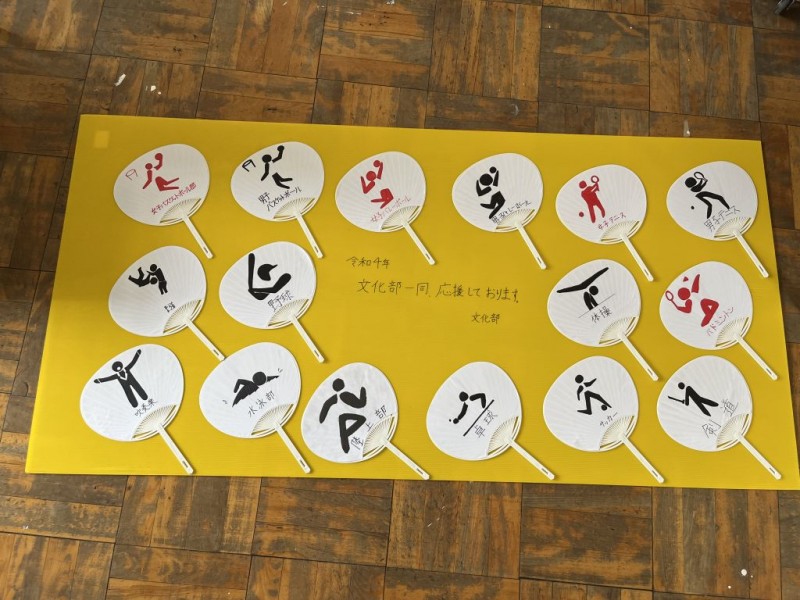 女子バスケットボール部
男子
バスケットボール
女子バレーボール
女子テニス
男子テニス
令和4年
文化部一同、応援しております。
文化部
野球
体操
バドミントン
吹奏楽
水泳部
陸上部
卓球
サッカー
剣道